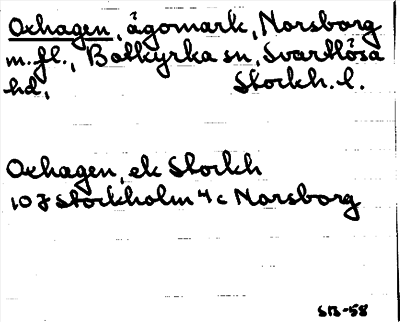 Oxhagen, ägomark, Norsborg
m.fl., Botkyrka sn, Svartlösa
hd, Stockh. l.
Oxhagen, ek Stockh
10 J Stockholm 4 c Norsborg
SB-58